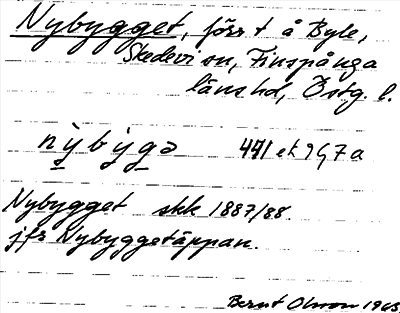 Nybygget, förr t å Byle,
Skedevi sn, Finspånga
läns hd, Östg. l.
nỳbỳgə 441 ek 9 47 a
Nybygget skk 1887/88.
jfr Nybyggetäppan.
Bernt Olsson 1963